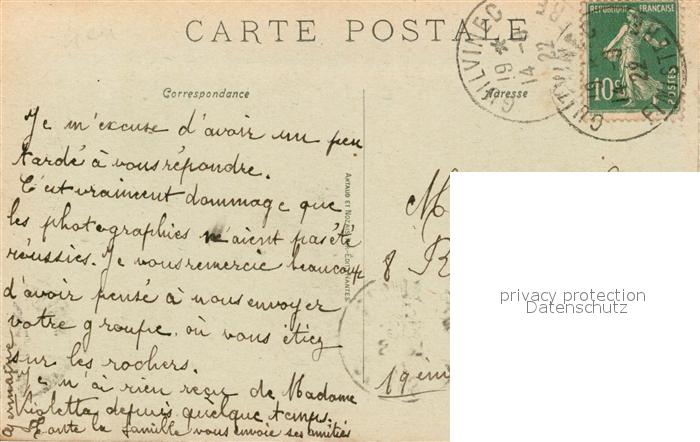 CARTE POSTALE
RÉPUBLIQUE FRANÇAISE
10c
POSTES
GUILVINEC
19 14 -8 22
FINISTÈRE
Correspondance
Adresse
Je m'excuse d'avoir un peu
tardé à vous répondre.
C'est vraiment dommage que
les photographies n'aient pas été
réussies. Je vous remercie beaucoup
d'avoir pensé à nous envoyer
votre groupe où vous étiez
sur les rochers.
Je n'ai rien reçu de Madame
Violetta depuis quelque temps.
Toute la famille vous envoie ses amitiés
Germaine
ARTAUD ET NOZAIS - EDIT. NANTES
M
8 R
19èm
privacy protection
Datenschutz